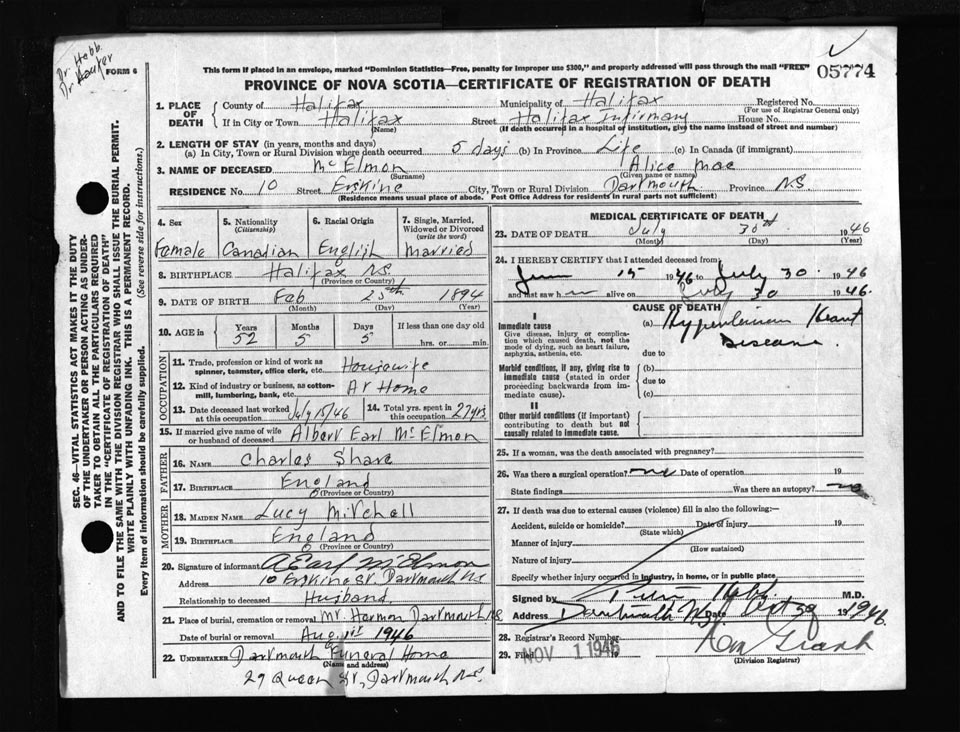 Dr. Hebb
Dr Hawker
FORM 6
This form if placed in an envelope, marked "Dominion Statistics—Free, penalty for improper use $300," and properly addressed will pass through the mail "FREE"
05774
PROVINCE OF NOVA SCOTIA—CERTIFICATE OF REGISTRATION OF DEATH
1. PLACE OF DEATH
County of Halifax Municipality of Halifax Registered No.
(For use of Registrar General only)
If in City or Town Halifax Street Halifax Infirmary House No.
(Name) (If death occurred in a hospital or institution, give the name instead of street and number)
2. LENGTH OF STAY (in years, months and days)
(a) In City, Town or Rural Division where death occurred 5 days (b) In Province Life (c) In Canada (if immigrant)
3. NAME OF DECEASED McElmon Alice Mae
(Surname) (Given name or names)
RESIDENCE No. 10 Street Erskine City, Town or Rural Division Dartmouth Province N.S
(Residence means usual place of abode. Post Office Address for residents in rural parts not sufficient)
4. Sex
Female
5. Nationality
(Citizenship)
Canadian
6. Racial Origin
English
7. Single, Married, Widowed or Divorced
(write the word)
Married
8. BIRTHPLACE Halifax N.S
(Province or Country)
9. DATE OF BIRTH Feb 25th 1894
(Month) (Day) (Year)
10. AGE in
Years Months Days If less than one day old
52 5 5 hrs. or min.
OCCUPATION
11. Trade, profession or kind of work as spinner, teamster, office clerk, etc. Housewife
12. Kind of industry or business, as cotton-mill, lumbering, bank, etc. At Home
13. Date deceased last worked at this occupation July 15/46
14. Total yrs. spent in this occupation 27 yrs.
15. If married give name of wife or husband of deceased Albert Earl McElmon
FATHER
16. NAME Charles Share
17. BIRTHPLACE England
(Province or Country)
MOTHER
18. MAIDEN NAME Lucy Mitchell
19. BIRTHPLACE England
(Province or Country)
20. Signature of informant A Earl McElmon
Address 10 Erskine St. Dartmouth N.S
Relationship to deceased Husband.
21. Place of burial, cremation or removal Mt. Hermon Dartmouth N.S
Date of burial or removal August 1946
22. UNDERTAKER Dartmouth Funeral Home
(Name and address)
29 Queen St., Dartmouth N.S.
MEDICAL CERTIFICATE OF DEATH
23. DATE OF DEATH July 30th 1946
(Month) (Day) (Year)
24. I HEREBY CERTIFY that I attended deceased from
June 15 1946 to July 30. 1946
and last saw h alive on July 30 1946.
CAUSE OF DEATH
I
Immediate cause
Give disease, injury or complication which caused death, not the mode of dying, such as heart failure, asphyxia, asthenia, etc.
(a) Hypertension Heart
Disease.
due to
Morbid conditions, if any, giving rise to immediate cause (stated in order proceeding backwards from immediate cause).
(b)
due to
(c)
II
Other morbid conditions (if important) contributing to death but not causally related to immediate cause.
25. If a woman, was the death associated with pregnancy?
26. Was there a surgical operation? no Date of operation 19
State findings Was there an autopsy? no
27. If death was due to external causes (violence) fill in also the following:—
Accident, suicide or homicide? Date of injury 19
(State which)
Manner of injury
(How sustained)
Nature of injury
Specify whether injury occurred in industry, in home, or in public place
Signed by Hebb M.D.
Address Dartmouth N.S. Date Oct 29 1946.
28. Registrar's Record Number
29. Filed NOV 1 1946
(Division Registrar)
SEC. 46—VITAL STATISTICS ACT MAKES IT THE DUTY
OF THE UNDERTAKER OR PERSON ACTING AS UNDER-
TAKER TO OBTAIN ALL THE PARTICULARS REQUIRED
IN THE "CERTIFICATE OF REGISTRATION OF DEATH"
AND TO FILE THE SAME WITH THE DIVISION REGISTRAR WHO SHALL ISSUE THE BURIAL PERMIT.
WRITE PLAINLY WITH UNFADING INK. THIS IS A PERMANENT RECORD.
Every item of information should be carefully supplied. (See reverse side for instructions.)